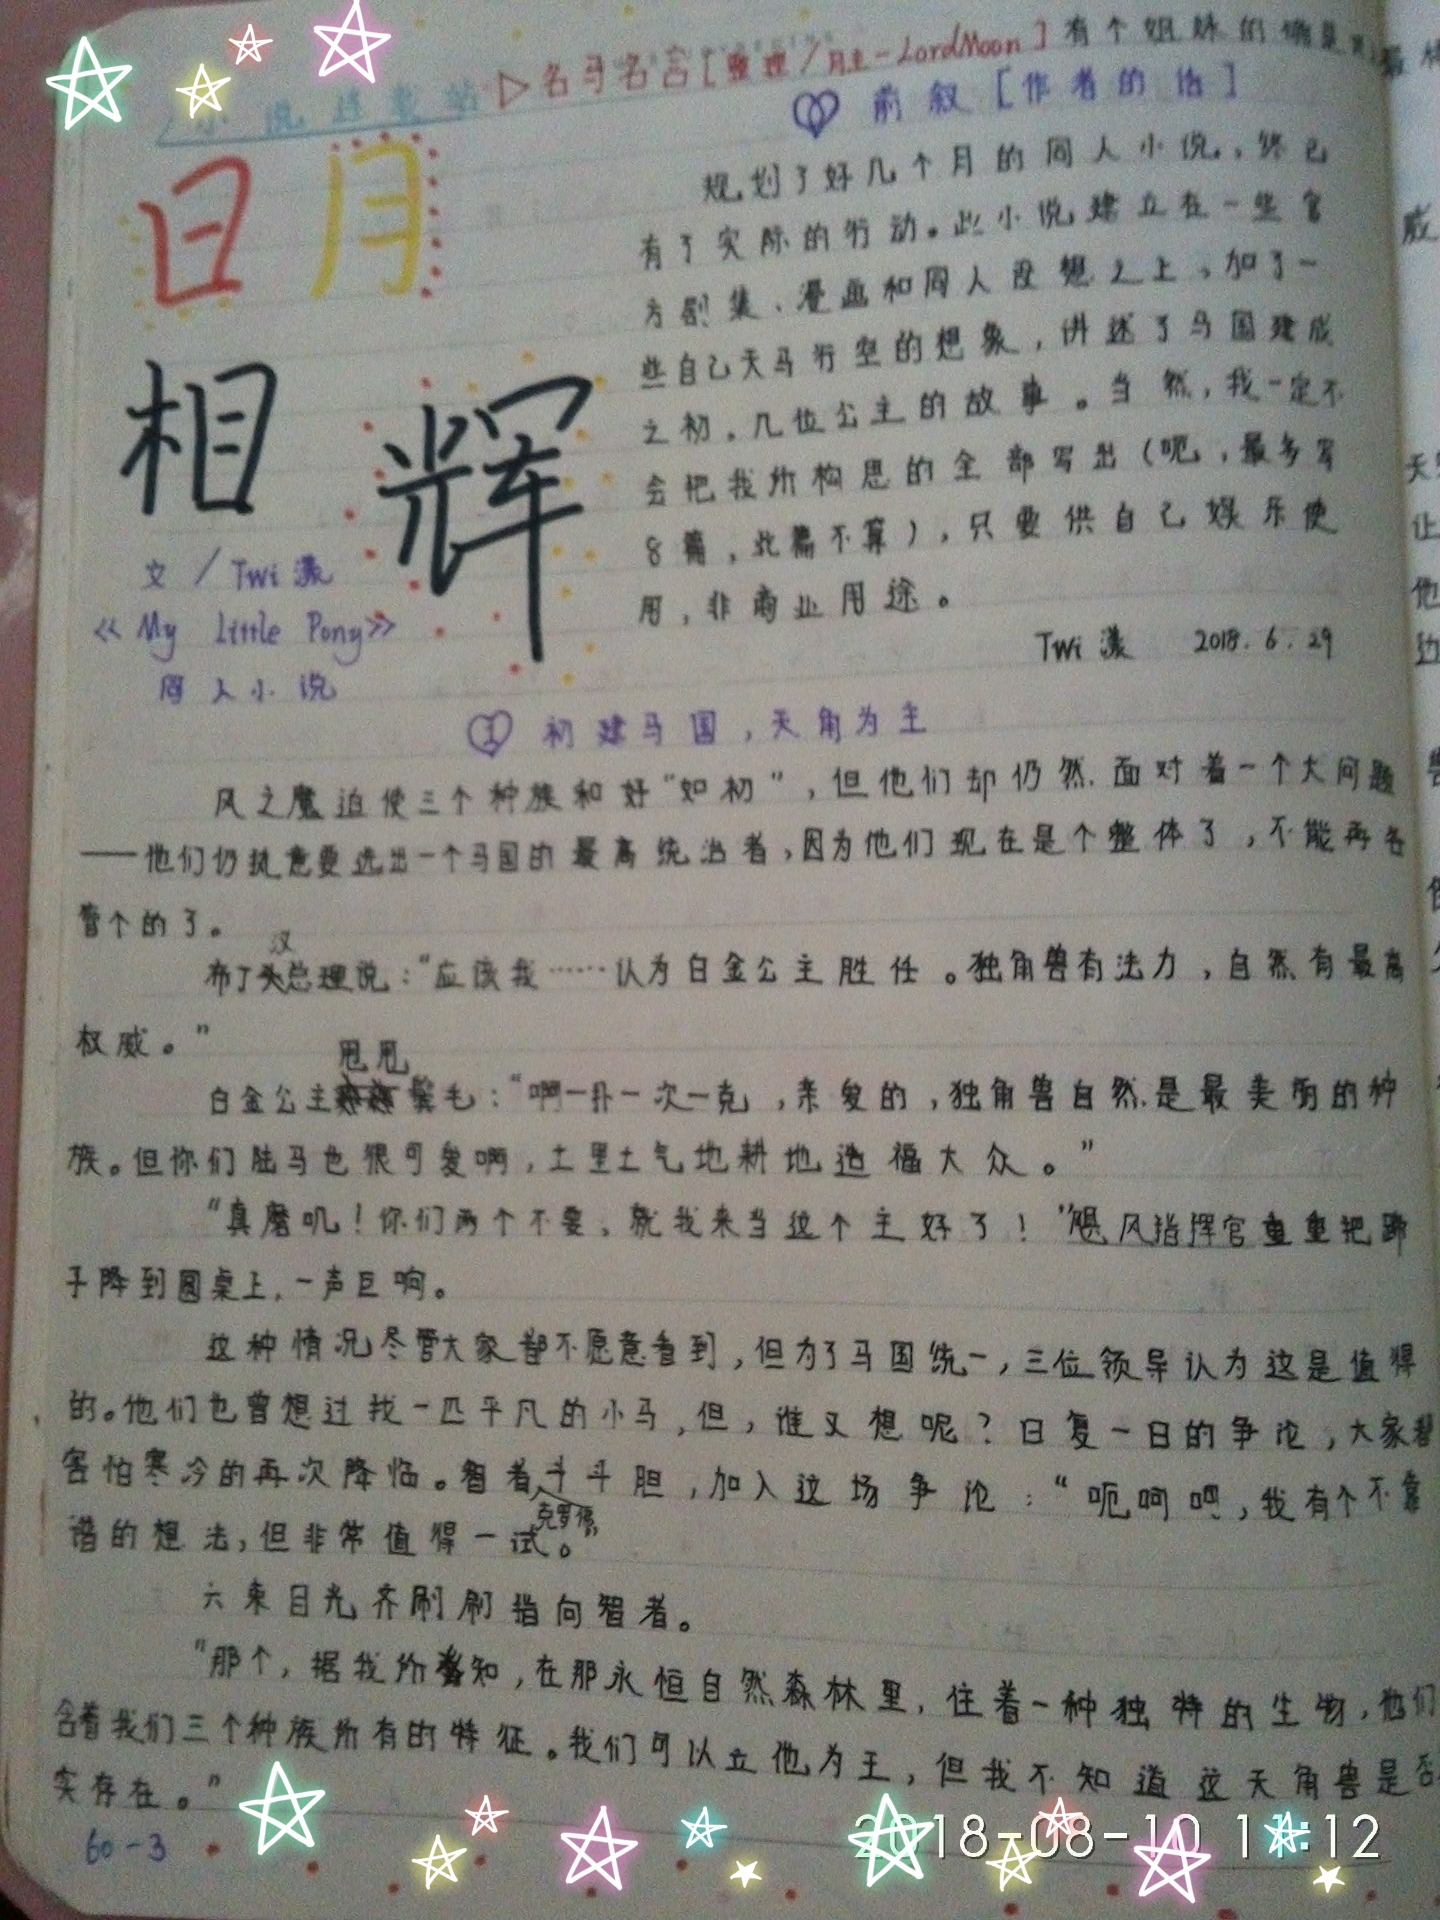 小说连载站 ▷名马名言[整理/月主-LordMoon]有个姐妹的
前叙[作者的话]
日月
相辉
文/Twi漾
《My Little Pony》
同人小说
规划了好几个月的同人小说,终已
有了实际的行动。此小说建立在一些官
方剧集、漫画和同人设想之上,加了一
些自己天马行空的想象,讲述了马国建成
之初,几位公主的故事。当然,我一定不
会把我所构思的全部写出(呃,最多写
8篇,此篇不算),只要供自己娱乐使
用,非商业用途。
Twi漾 2018.6.29
① 初建马国,天角为主
风之魔迫使三个种族和好“如初”,但他们却仍然面对着一个大问题
——他们仍执意要选出一个马国的最高统治者,因为他们现在是个整体了,不能再各
管个的了。
汉
布丁头总理说:“应该我……认为白金公主胜任。独角兽有法力,自然有最高
权威。”
甩甩
白金公主鬃毛:“啊一扑一次一克,亲爱的,独角兽自然是最美丽的种
族。但你们陆马也很可爱啊,土里土气地耕地造福大众。”
“真磨叽!你们两个不要,就我来当这个主好了!”飓风指挥官重重把蹄
子降到圆桌上,一声巨响。
这种情况尽管大家都不愿意看到,但为了马国统一,三位领导认为这是值得
的。他们也曾想过找一匹平凡的小马,但,谁又想呢?日复一日的争论,大家都
害怕寒冷的再次降临。智者斗斗胆,加入这场争论:“呃呵吧,我有个不靠
克罗佛
谱的想法,但非常值得一试。”
六束目光齐刷刷指向智者。
“那个,据我所知,在那永恒自然森林里,住着一种独特的生物,他们
含着我们三个种族所有的特征。我们可以立他为王,但我不知道这天角兽是否
实存在。”
60-3
2018-08-10 11:12